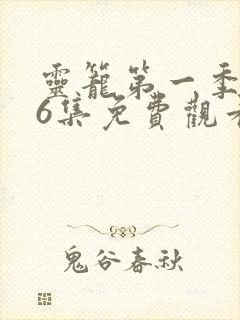 靈籠第一季
6集免費觀
鬼谷春秋